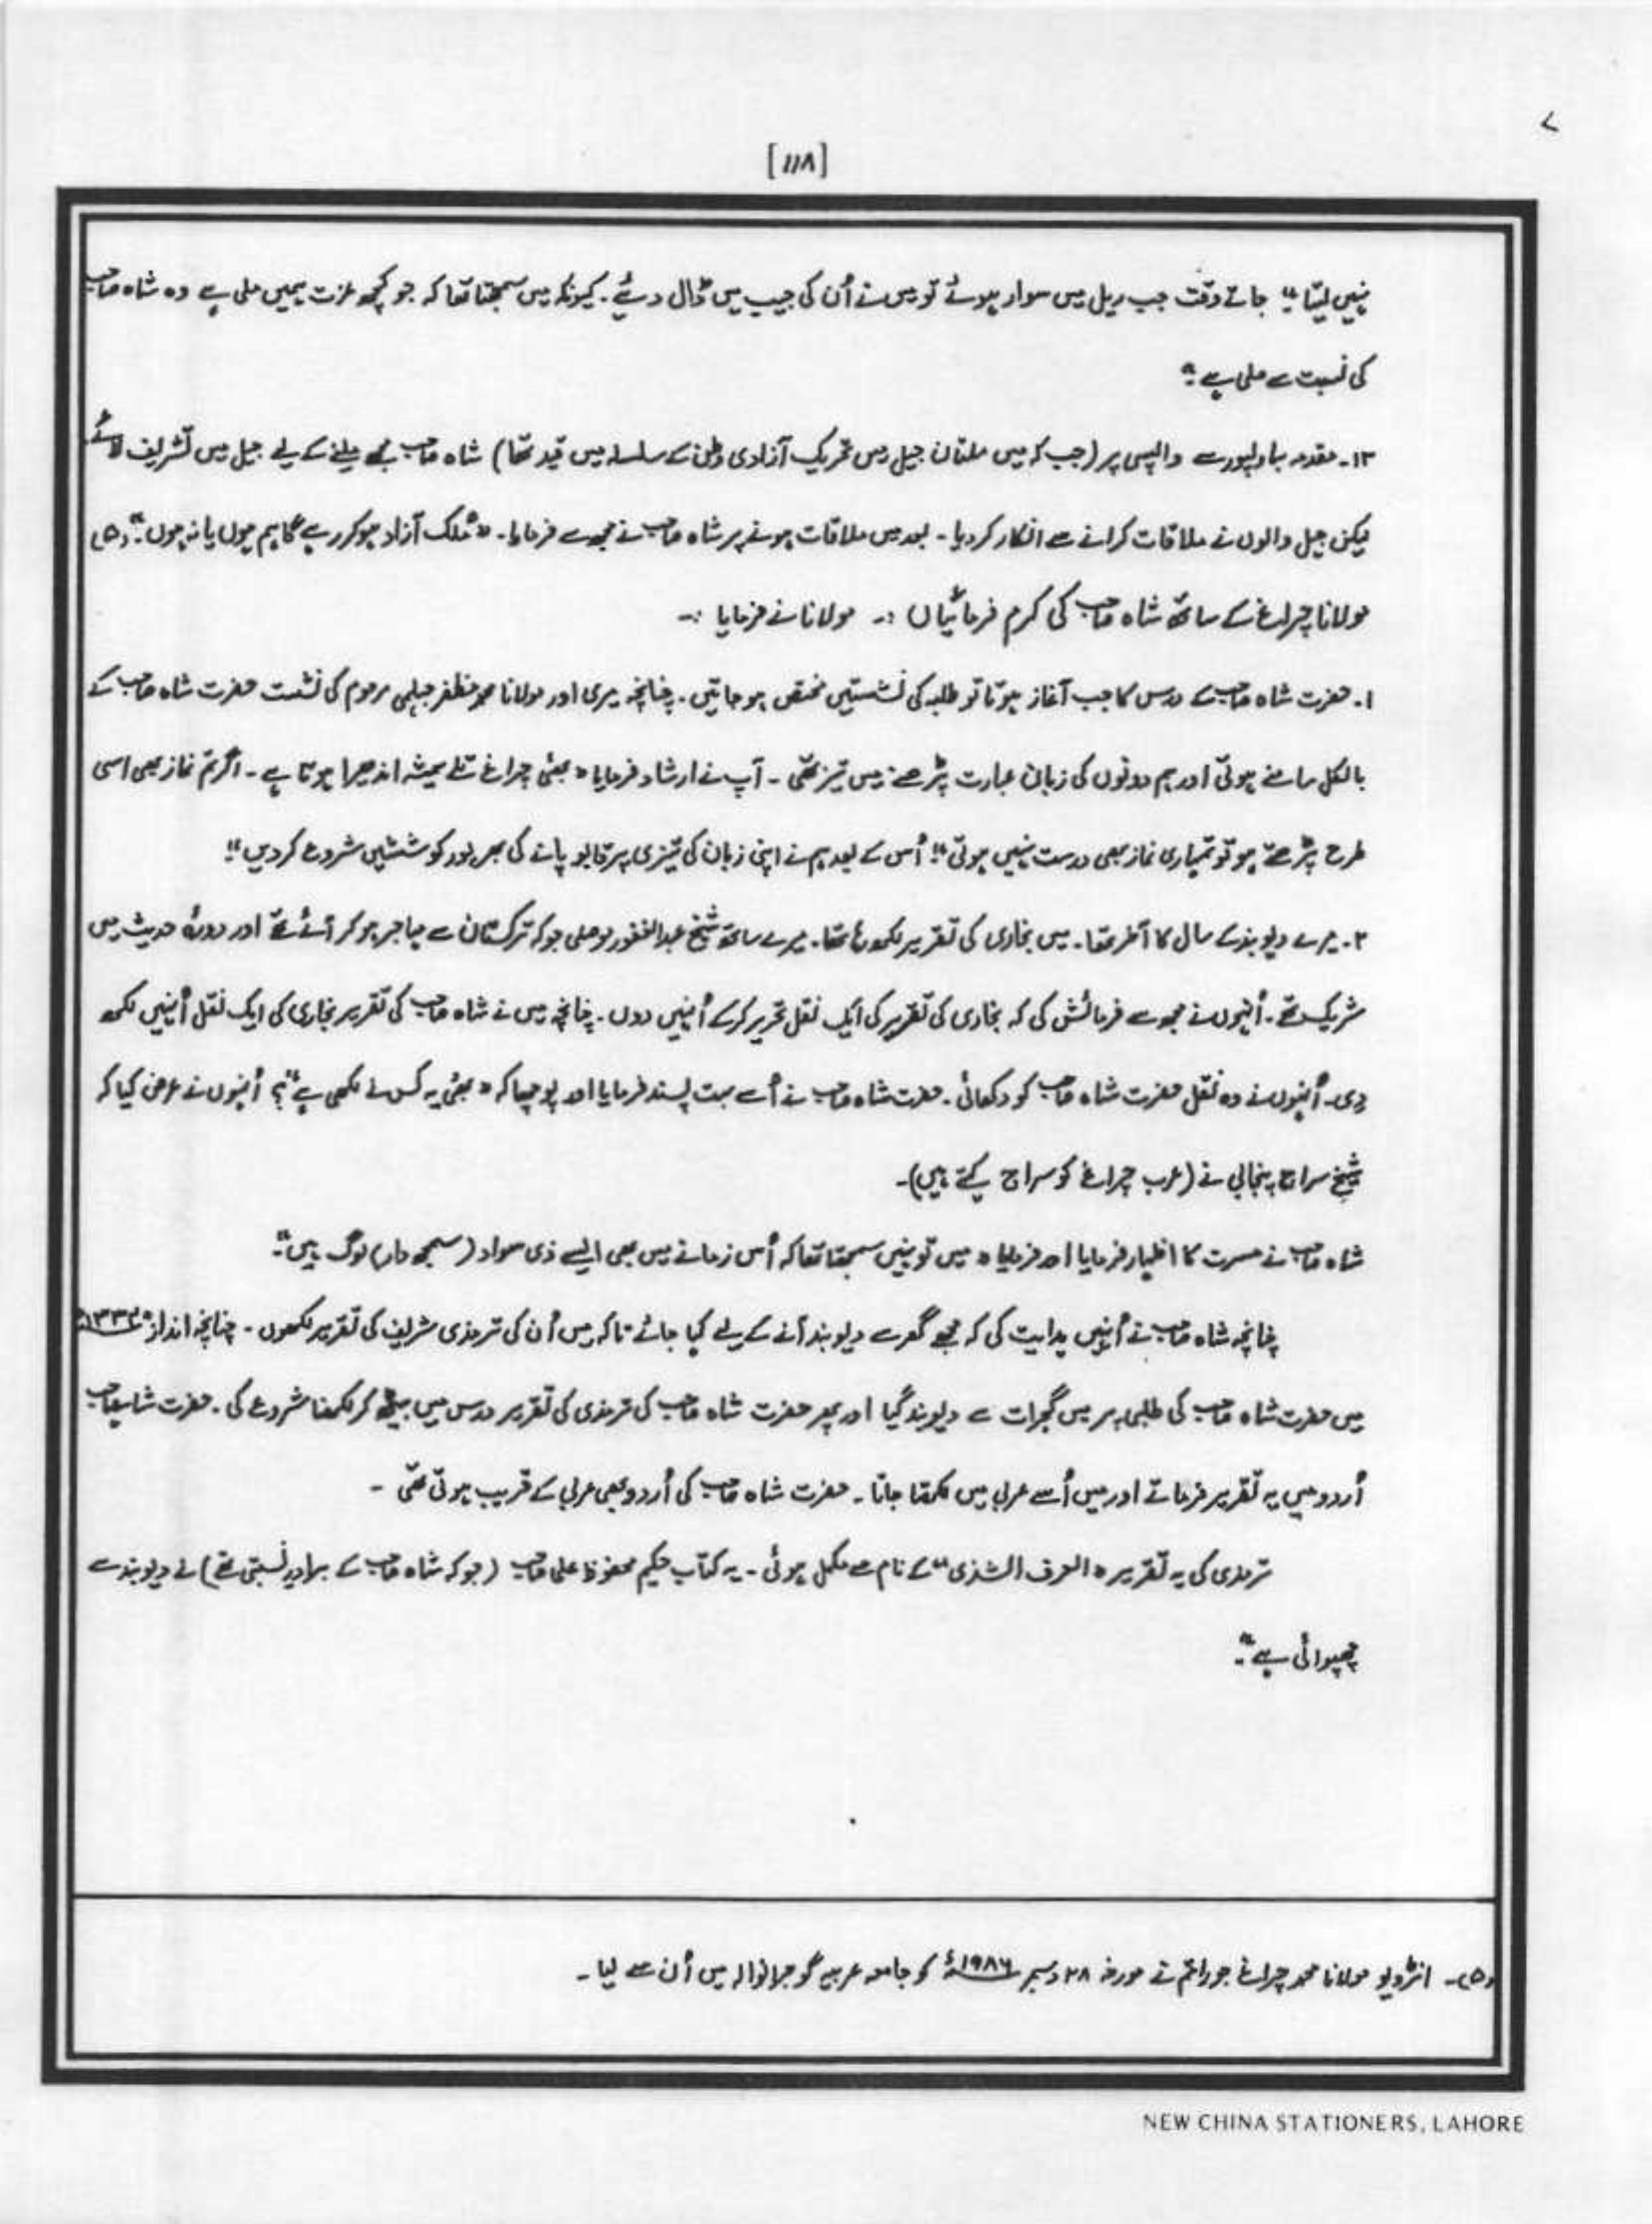 [۱۱۸]
نہیں لیتا“ جاتے وقت جب ریل میں سوار ہوئے تو میں نے اُن کی جیب میں ڈال دیئے۔ کیونکہ میں سمجھتا تھا کہ جو کچھ عزت ہمیں ملی ہے وہ شاہ صاحب
کی نسبت سے ملی ہے“۔
۱۳۔ مقدمہ بہاولپور سے واپسی پر (جب کہ میں ملتان جیل میں تحریک آزادی وطن کے سلسلہ میں قید تھا) شاہ صاحب مجھے ملنے کے لیے جیل میں تشریف لائے
لیکن جیل والوں نے ملاقات کرانے سے انکار کردیا۔ بعد میں ملاقات ہونے پر شاہ صاحب نے مجھ سے فرمایا۔ ”مُلک آزاد ہوکر رہے گا ہم ہوں یا نہ ہوں“۔ (۵)
مولانا چراغ کے ساتھ شاہ صاحب کی کرم فرمائیاں :۔ مولانا نے فرمایا :۔
۱۔ حضرت شاہ صاحب کے درس کا جب آغاز ہوتا تو طلبہ کی نشستیں مختص ہو جاتیں۔ چنانچہ میری اور مولانا محمد مظفر جہلمی مرحوم کی نشست حضرت شاہ صاحب کے
بالکل سامنے ہوتی اور ہم دونوں کی زبان عبارت پڑھنے میں تیز تھی۔ آپ نے ارشاد فرمایا ”بھئی چراغ تلے ہمیشہ اندھیرا ہوتا ہے۔ اگر تم نماز بھی اسی
طرح پڑھتے ہو تو تمہاری نماز بھی درست نہیں ہوتی“ اُس کے بعد ہم نے اپنی زبان کی تیزی پر قابو پانے کی بھرپور کوششیں شروع کردیں“
۲۔ میرے دیوبند کے سال کا آخر تھا۔ میں بخاری کی تقریر لکھ رہا تھا۔ میرے ساتھ شیخ عبدالغفور موصلی جو کہ ترکستان سے مہاجر ہو کر آئے تھے اور دورۂ حدیث میں
شریک تھے۔ اُنہوں نے مجھ سے فرمائش کی کہ بخاری کی تقریر کی ایک نقل تحریر کرکے اُنہیں دوں۔ چنانچہ میں نے شاہ صاحب کی تقریر بخاری کی ایک نقل اُنہیں لکھ
دی۔ اُنہوں نے وہ نقل حضرت شاہ صاحب کو دکھائی۔ حضرت شاہ صاحب نے اُسے بہت پسند فرمایا اور پوچھا کہ ”بھئی یہ کس نے لکھی ہے“؟ اُنہوں نے عرض کیا کہ
شیخ سراج پنجابی نے (عرب چراغ کو سراج کہتے ہیں)۔
شاہ صاحب نے مسرت کا اظہار فرمایا اور فرمایا ”میں تو نہیں سمجھتا تھا کہ اُس زمانے میں بھی ایسے ذی سواد (سمجھ دار) لوگ ہیں“۔
چنانچہ شاہ صاحب نے اُنہیں ہدایت کی کہ مجھے گھر سے دیوبند آنے کے لیے کہا جائے تاکہ میں اُن کی ترمذی شریف کی تقریر لکھوں۔ چنانچہ اندازً
میں حضرت شاہ صاحب کی طلبی پر میں گجرات سے دیوبند گیا اور پھر حضرت شاہ صاحب کی ترمذی کی تقریر درس میں بیٹھ کر لکھنا شروع کی۔ حضرت شاہ صاحب
اُردو میں یہ تقریر فرماتے اور میں اُسے عربی میں لکھتا جاتا۔ حضرت شاہ صاحب کی اُردو بھی عربی کے قریب ہوتی تھی۔
ترمذی کی یہ تقریر ”العرف الشذی“ کے نام سے مکمل ہوئی۔ یہ کتاب حکیم محفوظ علی صاحب (جو کہ شاہ صاحب کے برادرِ نسبتی تھے) نے دیوبند سے
چھپوائی ہے“۔
(۵)۔ انٹرویو مولانا محمد چراغ جو راقم نے مورخہ ۲۸ دسمبر ۱۹۸۶ء کو جامعہ عربیہ گوجرانوالہ میں اُن سے لیا۔
NEW CHINA STATIONERS, LAHORE